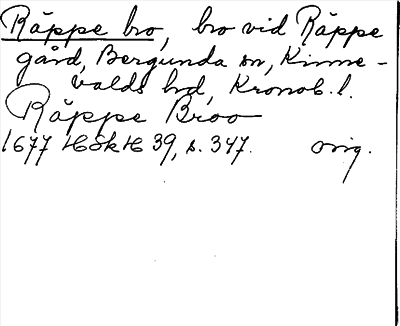 Räppe bro, bro vid Räppe
gård, Bergunda sn, Kinne-
valds hd, Kronob. l.
Räppe Broo
1677 HSkH 39, s. 347. orig.